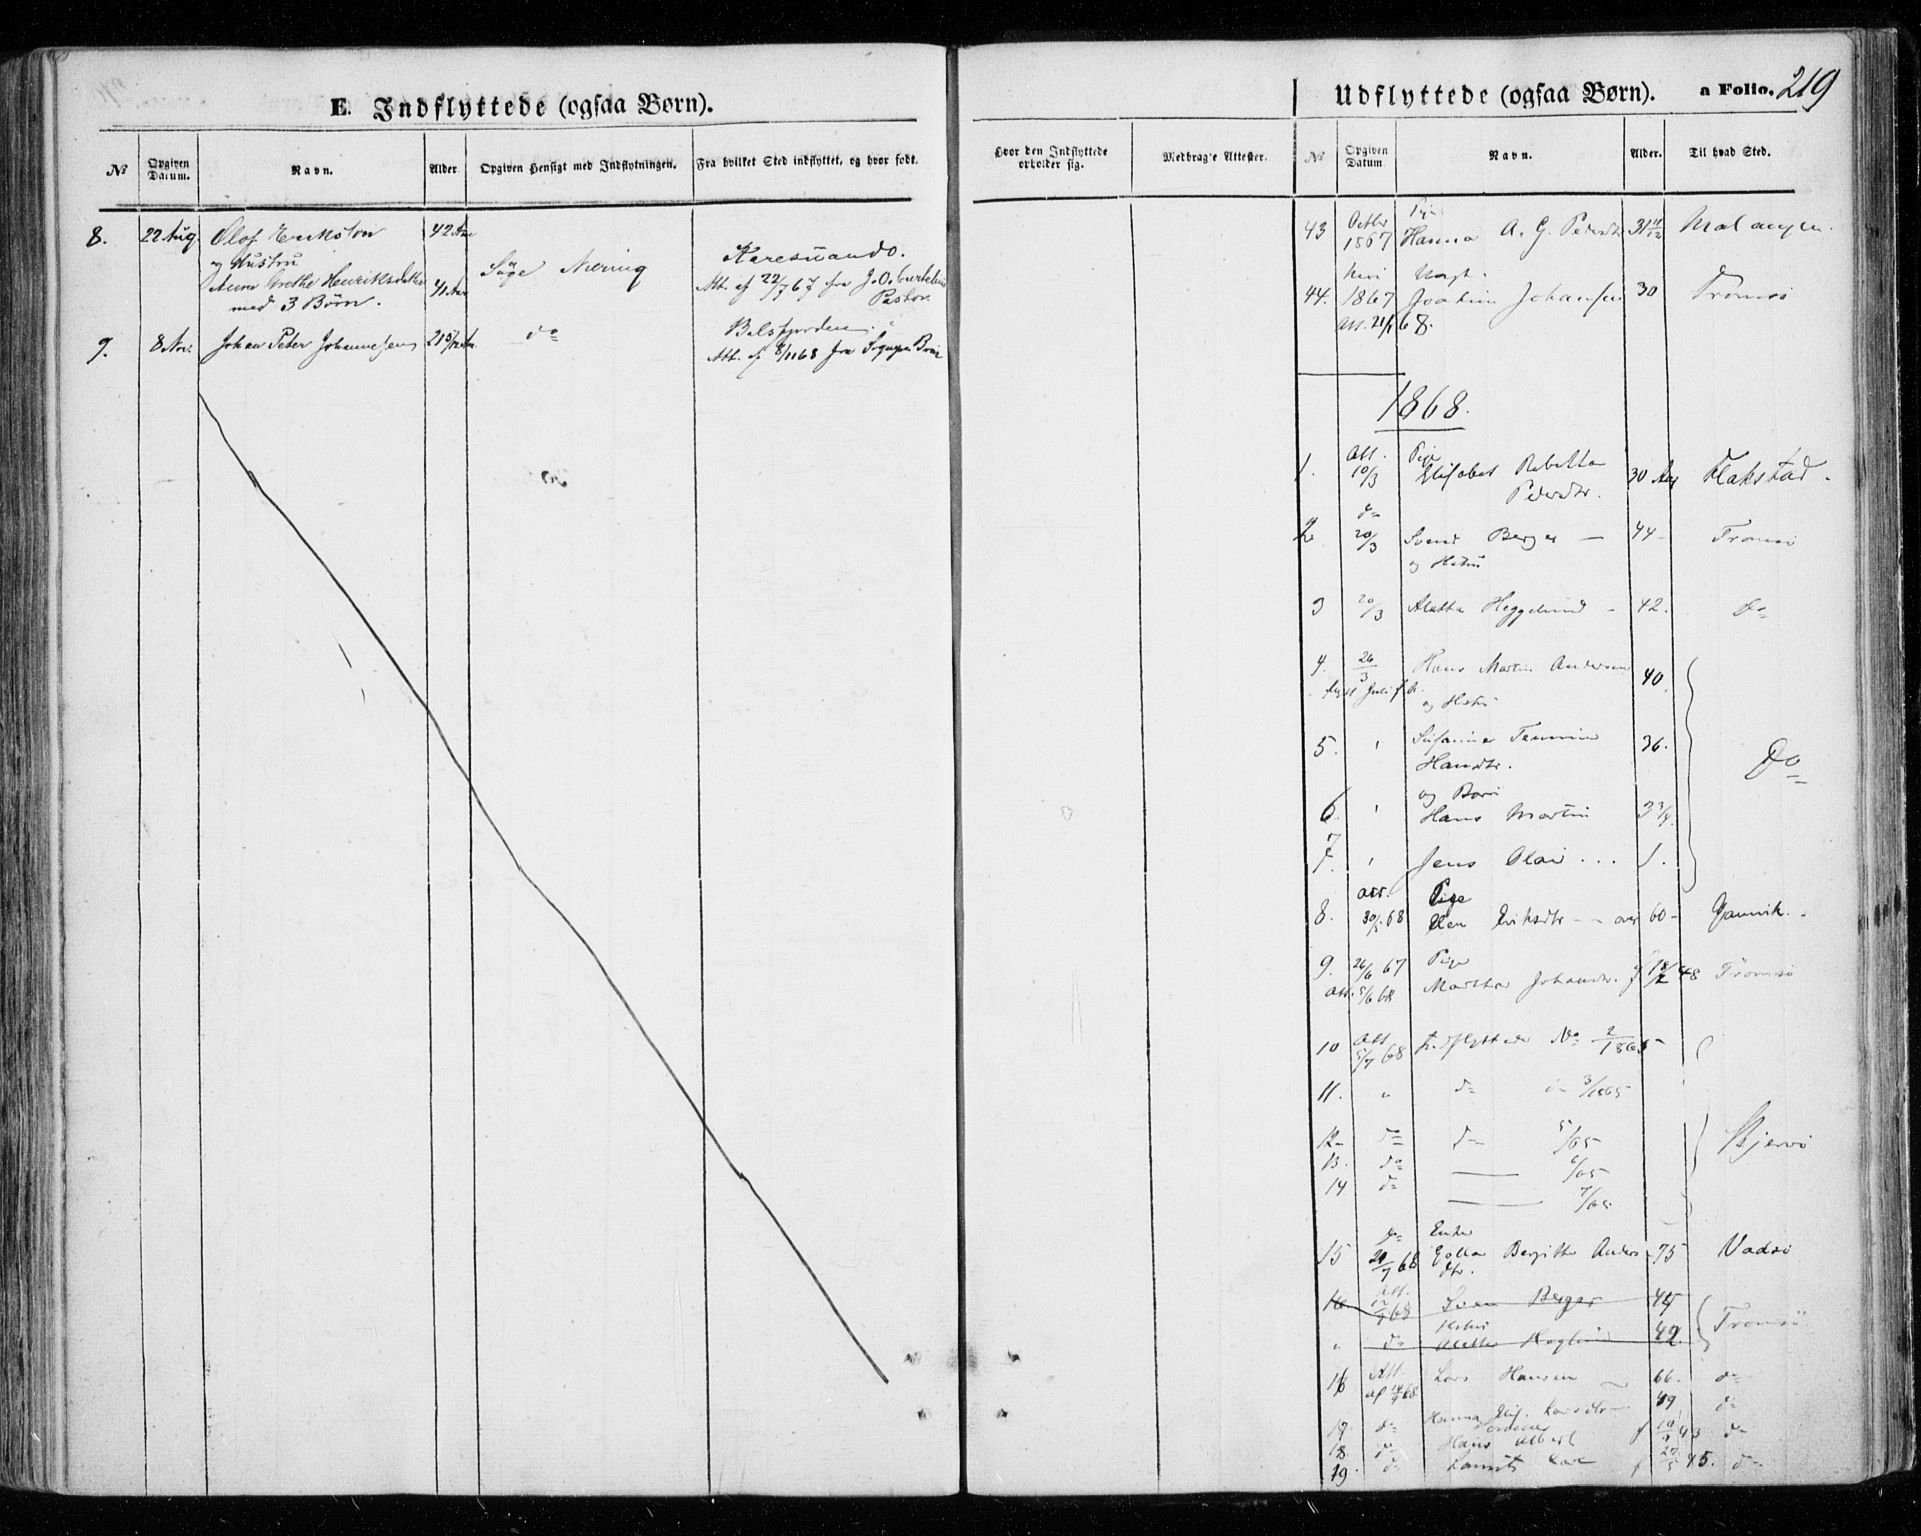 E. Indflyttede (ogsaa Børn).
No
Opgiven Datum.
Navn.
Alder
Opgiven Hensigt med Indflytningen.
Fra hvilket Sted indflyttet, og hvor født.
8. 22 Aug. Olof Erikson 42 Aar
og Hustru
Grethe Henriksdatter 41 Aar
med 3 Børn.
Søge Næring
Karesuando.
Att. af 22/7 67 fra J. O.
Pastor
9. 8 Nov. Johan Peter Johannesen 21 do
Balsfjorden.
Att. af 8/11 68 fra
Udflyttede (ogsaa Børn). a Folio. 219
Hvor den Indflyttede opholder sig.
Medbragte Attester.
No
Opgiven Datum
Navn.
Alder.
Til hvad Sted.
Pige
43 Octbr 1867 Hanna A. G. Pedersdtr 31 11/12 Malangen.
Ungk.
44. 1867 Joakim Johansen 30 Tromsö
Att. 21/1 68.
1868.
Att. Pige
1. 10/3 Elisabet Rebekka 30 Aar Flakstad.
Pedersdtr.
do
2 20/3 Svend Berger — 44 - Tromsö
og Hstru
3 20/3 Aletta Heggelund - 42. Do
4. 26/3 Hans Martin Andersen 40.
og Hstru
5. " Susanna 36. Do
Hansdtr.
og Børn
6. " Hans Martin 3 3/4.
7. " Jens Olai ... 1.
Att. Pige
8. 30/5 68 Elen Eriksdtr - - over 60 - Gamvik.
9. 26/6 67 Pige
Att. 5/6 68 Martha Johansdtr. f 18/2 48 Tromsö
10 Att. 5/7 68 Indflyttede No 2/1865
11. " do do 3/1865
12 - do do 5/65 Skjervö
13. do — 6/65
14 do — 7/65
do Enke
15 20/7 68 Bergitte Anders- 75 Vadsö
dtr.
16 Att. 68 Sven Berger 44
Hstru
" do Aletta 42. Tromsö
16 Att. af 14/9 68 Lars Hansen 66. do
17 do Hanna Elis. Larsdtr 49 do
18. do Hans Albert f 10/ 43 do
19. do f 27/5 45. do